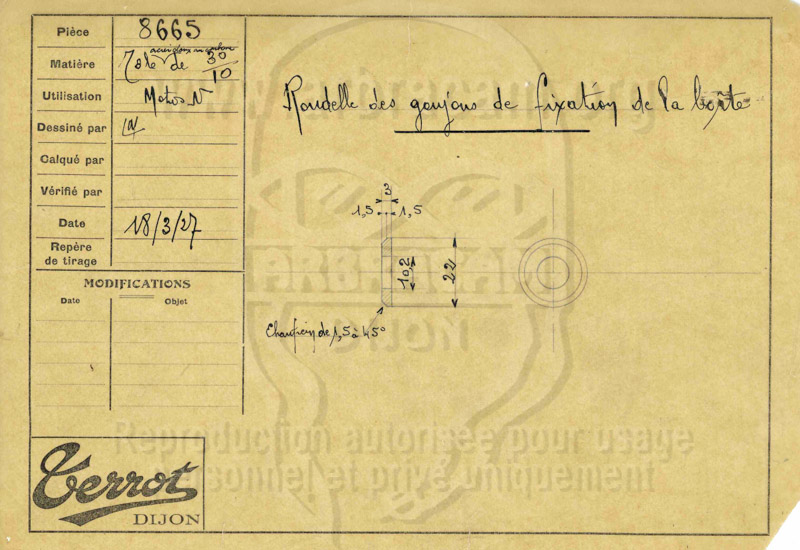 Pièce 8665
acier doux au carbone
Matière Tôle de 30/10
Utilisation Motos N
Dessiné par
Calqué par
Vérifié par
Date 18/3/27
Repère
de tirage
MODIFICATIONS
Date Objet
Rondelle des goujons de fixation de la boîte
3
1,5 1,5
10,2
22
Chanfrein de 1,5 à 45°
Terrot
DIJON
ARBRACAN
DIJON
Reproduction autorisée pour usage
personnel et privé uniquement